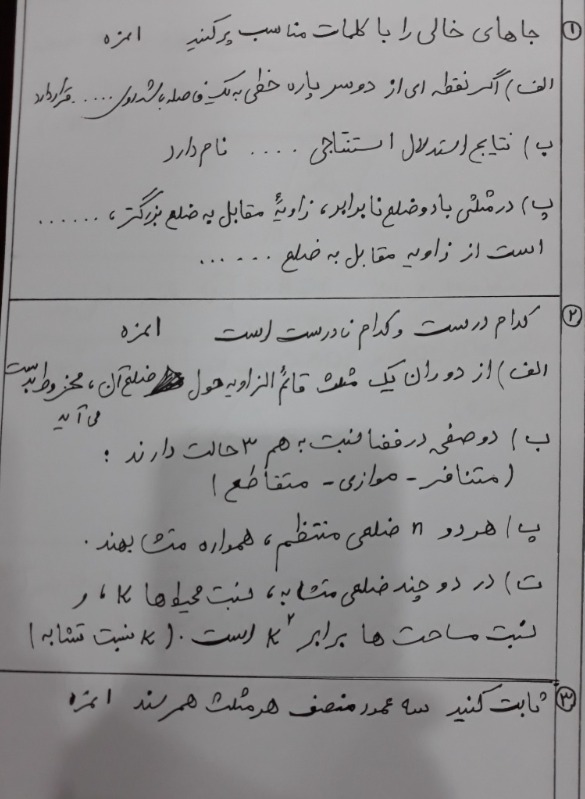 ① جاهای خالی را با کلمات مناسب پر کنید ۱نمره
الف) اگر نقطه ای از دو سر پاره خطی به یک فاصله باشد روی ..... قرار دارد
ب) نتایج استدلال استنتاجی .... نام دارد
پ) در مثلثی با دو ضلع نابرابر، زاویهٔ مقابل به ضلع بزرگتر، ......
است از زاویه مقابل به ضلع ......
② کدام درست و کدام نادرست است ۱نمره
الف) از دوران یک مثلث قائم الزاویه حول ضلع آن، مخروط بدست
می آید
ب) دو صفحه در فضا نسبت به هم ۳ حالت دارند :
(متنافر - موازی - متقاطع)
پ) هر دو n ضلعی منتظم، همواره متشابهند.
ت) در دو چند ضلعی متشابه، نسبت محیط ها K، و
نسبت مساحت ها برابر K² است. (K نسبت تشابه)
③ ثابت کنید سه عمود منصف هر مثلث همرسند ۱نمره